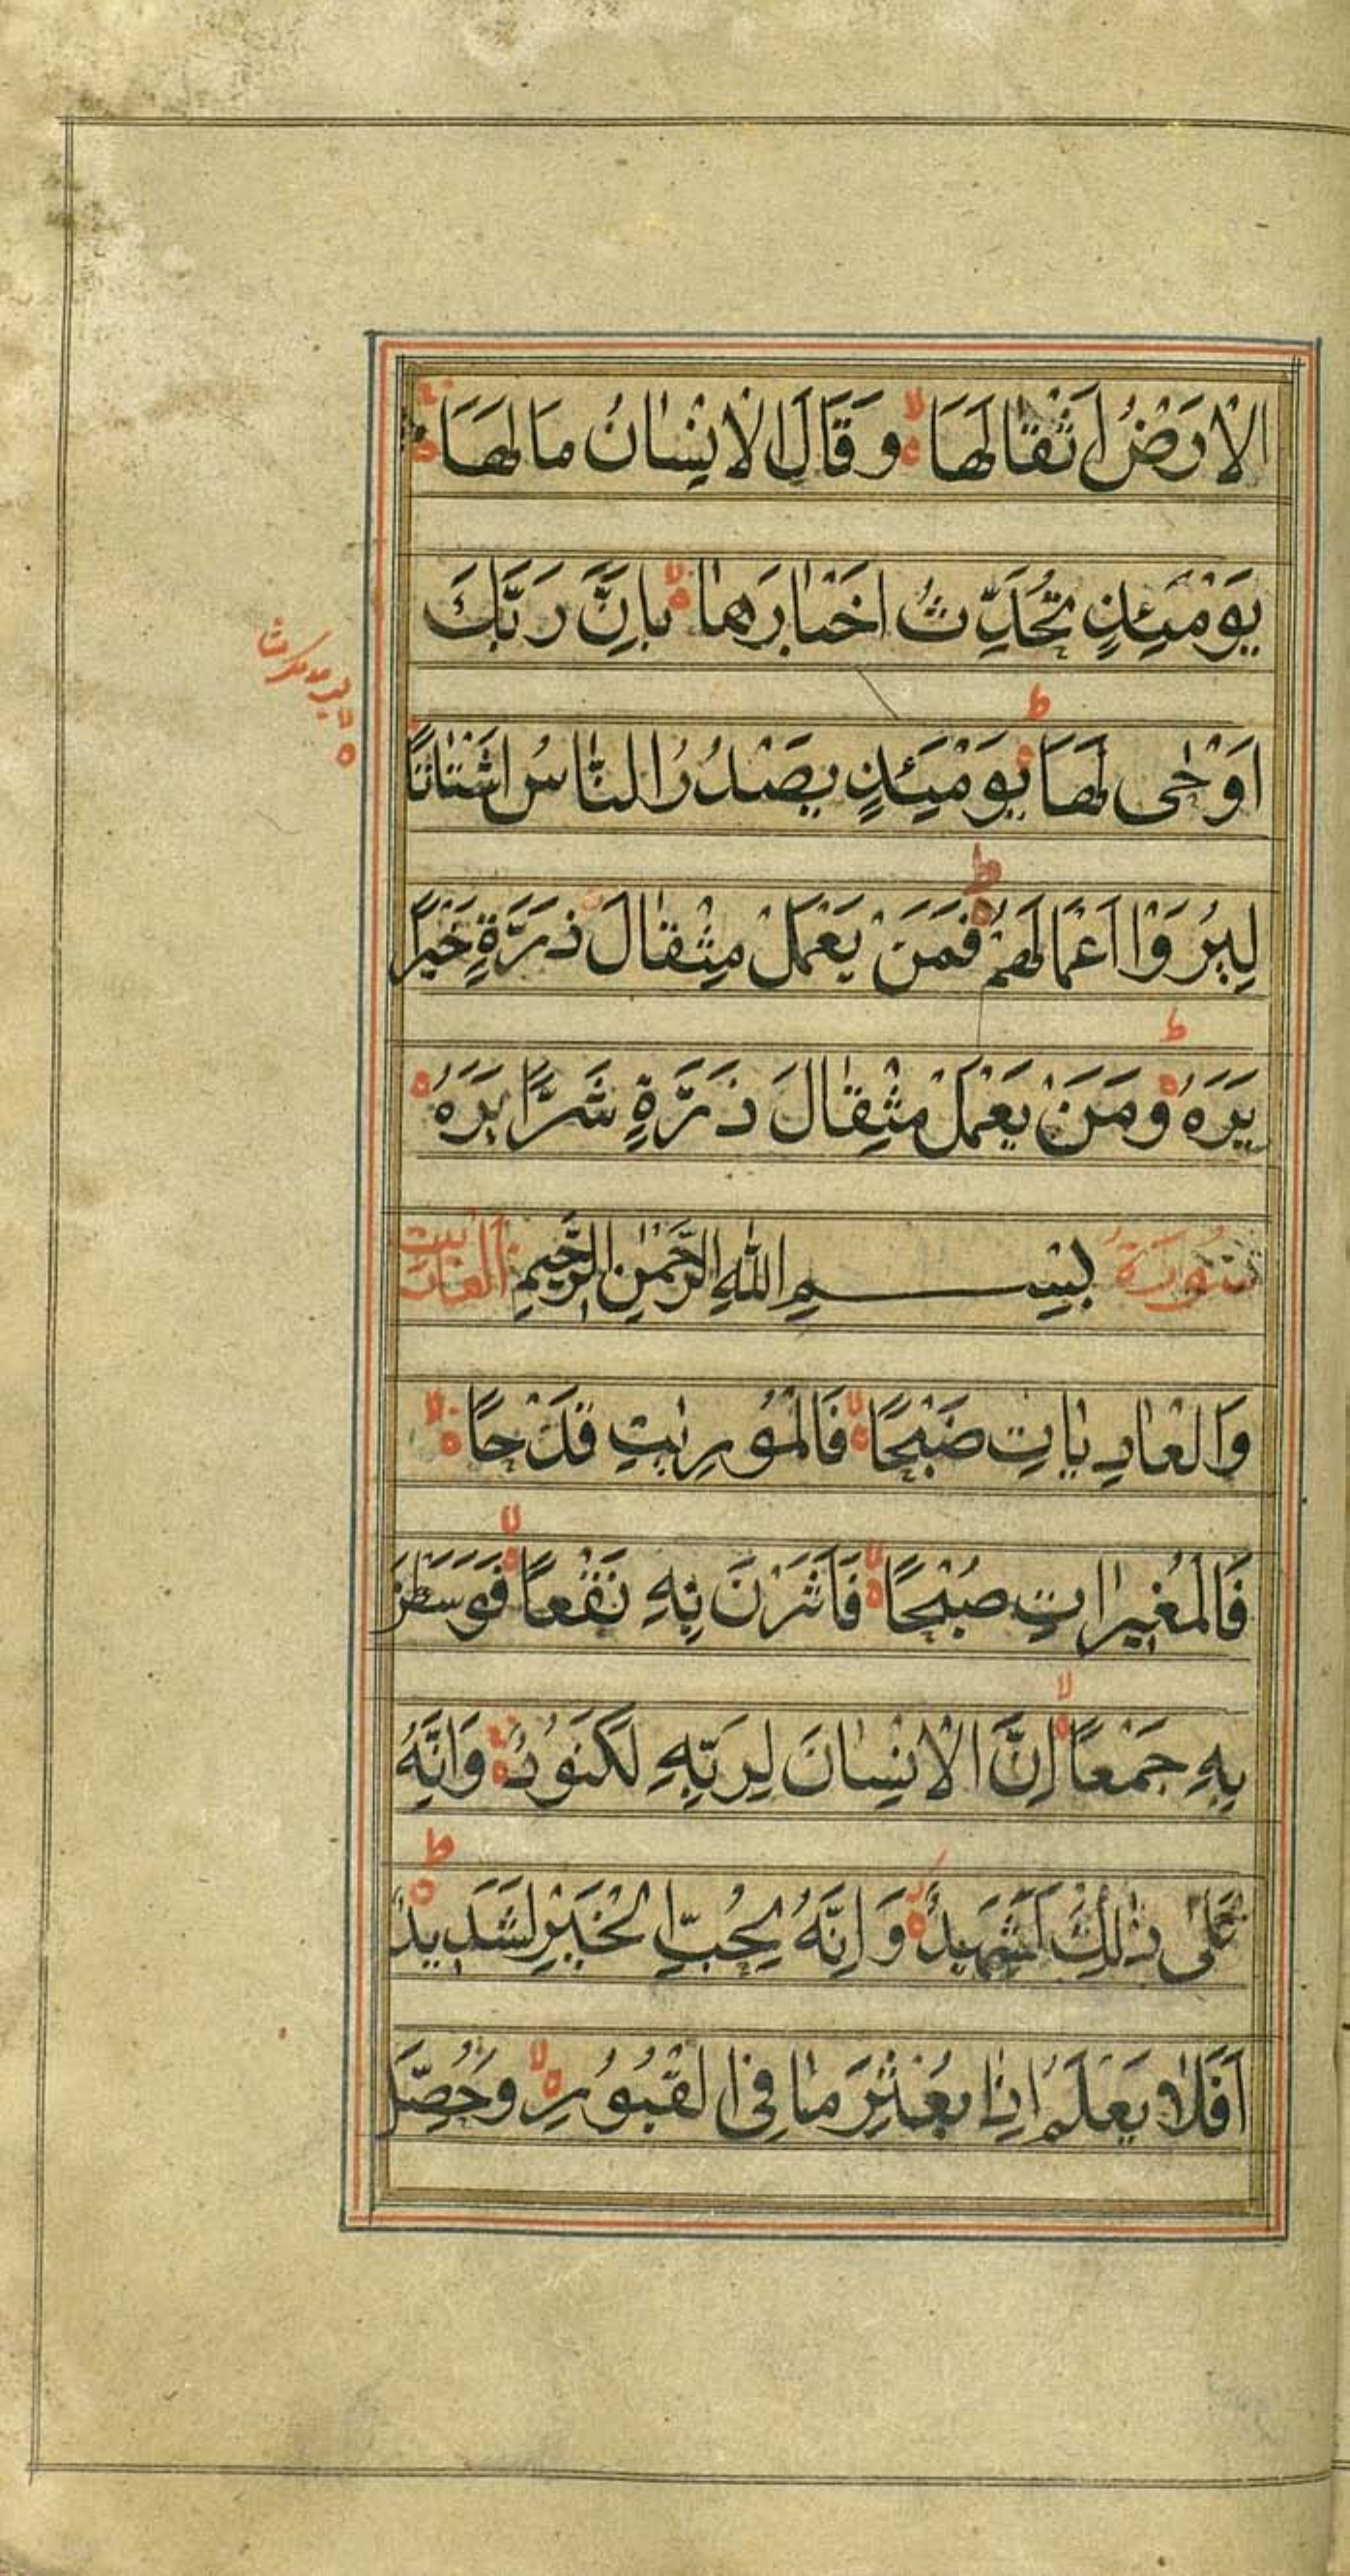 الاَرْضُ اَثْقالَهَا وَقَالَ الاِنْسٰانُ مٰا لَهَا
يَوْمَئِذٍ تُحَدِّثُ اَخْبٰارَهٰا بِاَنَّ رَبَّكَ
اَوْحٰى لَهَا يَوْمَئِذٍ يَصْدُرُ النّٰاسُ اَشْتٰاتًا
لِيُرَوْا اَعْمَالَهُمْ فَمَنْ يَعْمَلْ مِثْقٰالَ ذَرَّةٍ خَيْرًا
يَرَهُ وَمَنْ يَعْمَلْ مِثْقٰالَ ذَرَّةٍ شَرًّا يَرَهُ
سُورَةُ بِسْمِ اللّٰهِ الرَّحْمٰنِ الرَّحِيمِ
وَالْعٰادِيٰاتِ ضَبْحًا فَالْمُورِيٰتِ قَدْحًا
فَالْمُغِيرٰاتِ صُبْحًا فَاَثَرْنَ بِهِ نَقْعًا فَوَسَطْنَ
بِهِ جَمْعًا اِنَّ الاِنْسٰانَ لِرَبِّهِ لَكَنُودٌ وَاِنَّهُ
عَلٰى ذٰلِكَ لَشَهِيدٌ وَاِنَّهُ لِحُبِّ الْخَيْرِ لَشَدِيدٌ
اَفَلاٰ يَعْلَمُ اِذٰا بُعْثِرَ مٰا فِى الْقُبُورِ وَحُصِّلَ